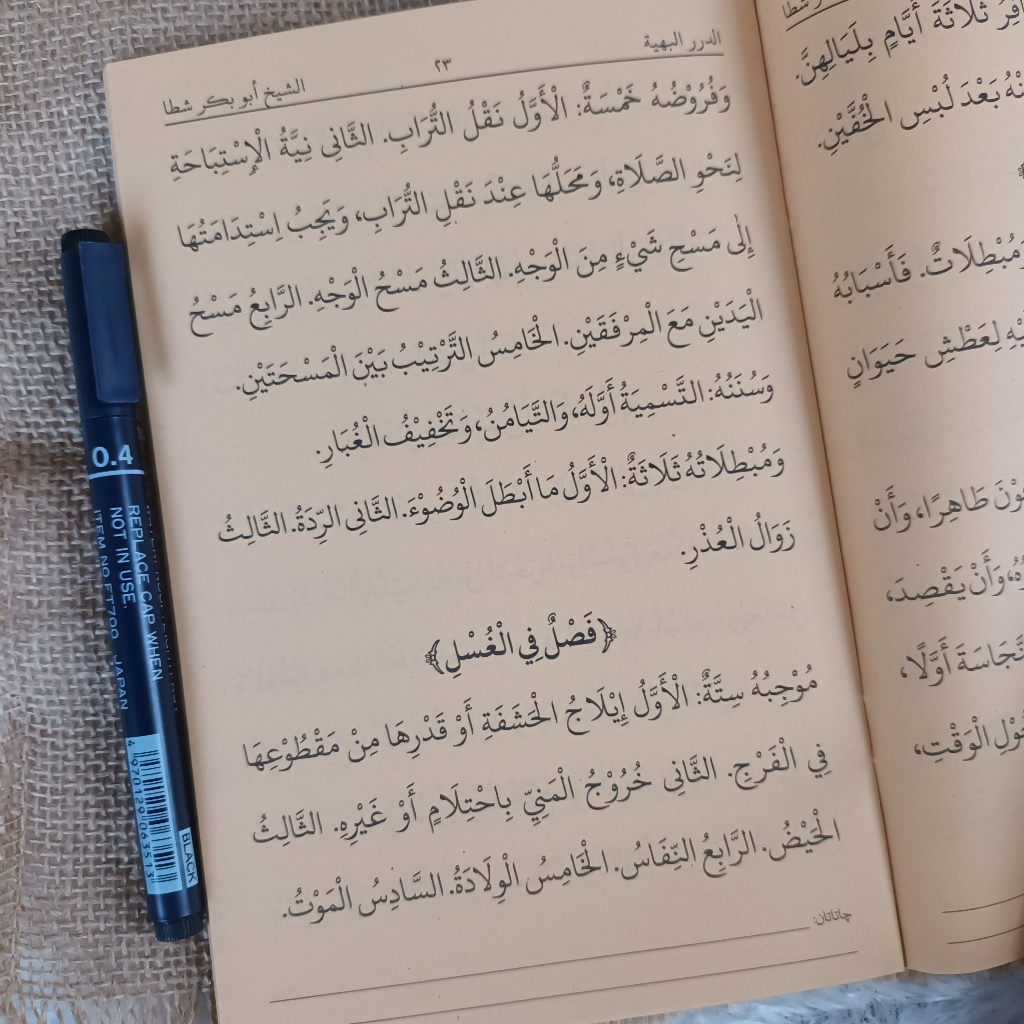 الدرر البهية
٢٣
الشيخ أبو بكر شطا
وَفُرُوْضُهُ خَمْسَةٌ: الْأَوَّلُ نَقْلُ التُّرَابِ. الثَّانِى نِيَّةُ الْإِسْتِبَاحَةِ
لِنَحْوِ الصَّلَاةِ، وَمَحَلُّهَا عِنْدَ نَقْلِ التُّرَابِ، وَيَجِبُ اِسْتِدَامَتُهَا
إِلٰى مَسْحِ شَيْءٍ مِنَ الْوَجْهِ. الثَّالِثُ مَسْحُ الْوَجْهِ. الرَّابِعُ مَسْحُ
الْيَدَيْنِ مَعَ الْمِرْفَقَيْنِ. الْخَامِسُ التَّرْتِيْبُ بَيْنَ الْمَسْحَتَيْنِ.
وَسُنَنُهُ: التَّسْمِيَةُ أَوَّلَهُ، وَالتَّيَامُنُ، وَتَخْفِيْفُ الْغُبَارِ.
وَمُبْطِلَاتُهُ ثَلَاثَةٌ: الْأَوَّلُ مَا أَبْطَلَ الْوُضُوْءَ. الثَّانِى الرِّدَةُ. الثَّالِثُ
زَوَالُ الْعُذْرِ.
﴿فَصْلٌ فِي الْغُسْلِ﴾
مُوْجِبُهُ سِتَّةٌ: الْأَوَّلُ إِيْلَاجُ الْحَشَفَةِ أَوْ قَدْرِهَا مِنْ مَقْطُوْعِهَا
فِي الْفَرْجِ. الثَّانِى خُرُوْجُ الْمَنِيِّ بِاحْتِلَامٍ أَوْ غَيْرِهِ. الثَّالِثُ
الْحَيْضُ. الرَّابِعُ النِّفَاسُ. الْخَامِسُ الْوِلَادَةُ. السَّادِسُ الْمَوْتُ.
چاتاتان:
شطا
ثَلَاثَةَ أَيَّامٍ بِلَيَالِهِنَّ.
بَعْدَ لُبْسِ الْخُفَّيْنِ.
وَمُبْطِلَاتٌ. فَأَسْبَابُهُ
لِعَطْشِ حَيَوَانٍ
طَاهِرًا، وَأَنْ
وَأَنْ يَقْصِدَ،
أَوَّلًا،
الْوَقْتِ،
0.4
REPLACE CAP WHEN
NOT IN USE.
ITEM NO FT700 JAPAN
BLACK
4 970129 063513